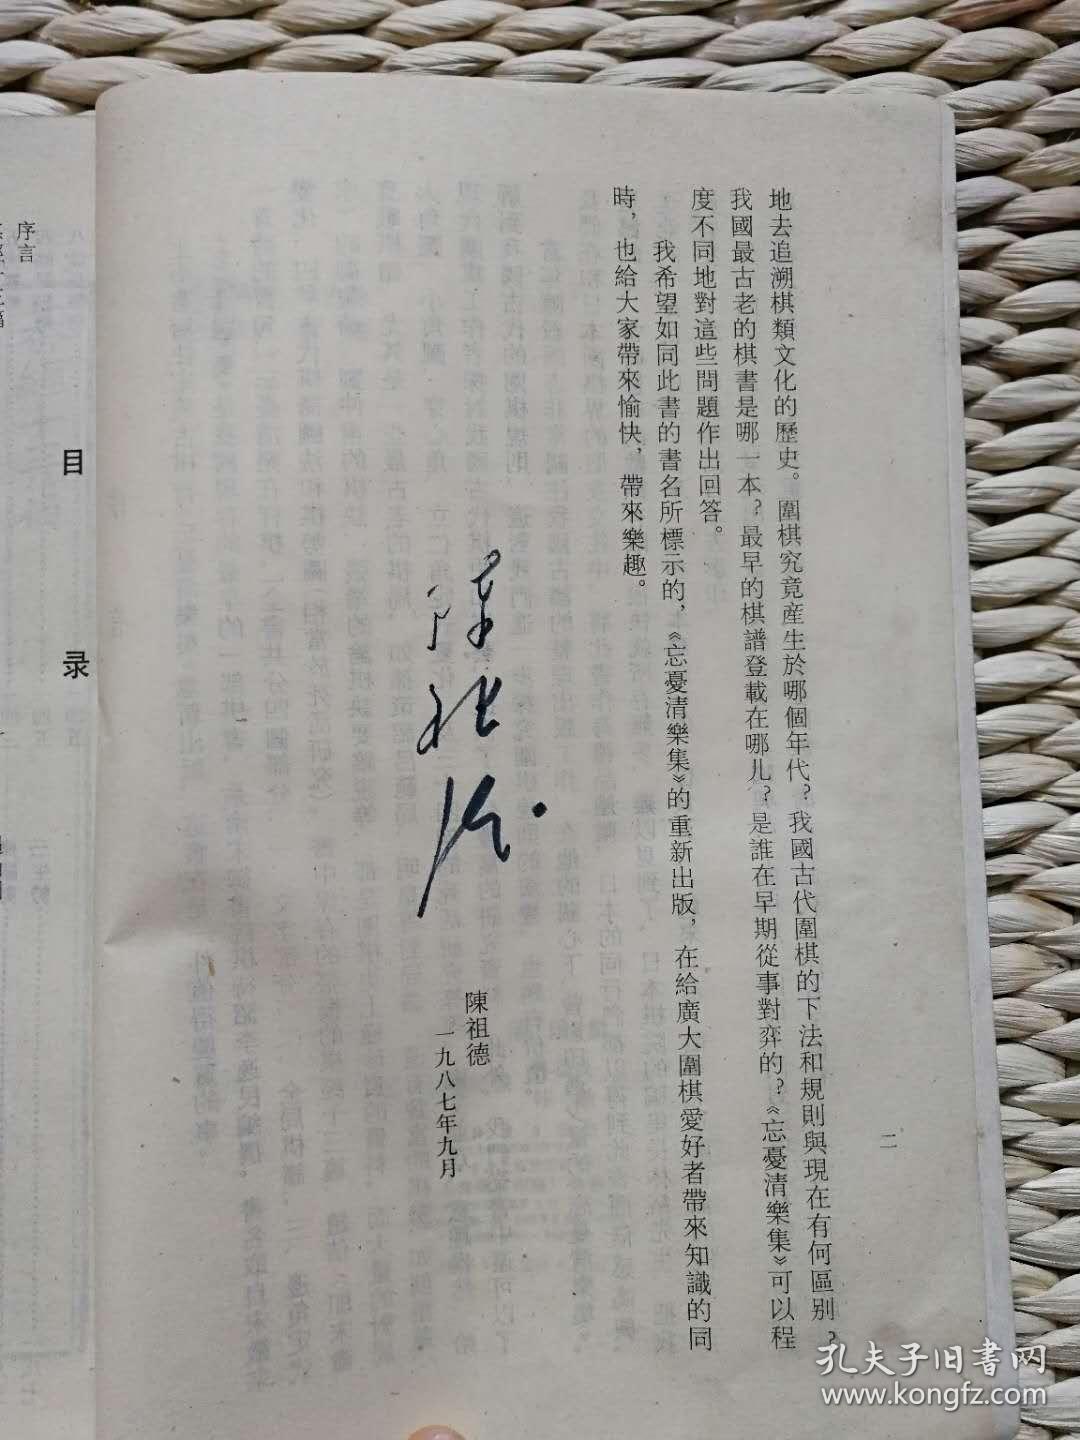 二
地去追溯棋類文化的歷史。圍棋究竟産生於哪個年代？我國古代圍棋的下法和規則與現在有何區别？
我國最古老的棋書是哪一本？最早的棋譜登載在哪儿？是誰在早期從事對弈的？《忘憂清樂集》可以程
度不同地對這些問題作出回答。
我希望如同此書的書名所標示的，《忘憂清樂集》的重新出版，在給廣大圍棋愛好者帶來知識的同
時，也給大家帶來愉快，帶來樂趣。
陳祖德
陳祖德
一九八七年九月
目录
序言
孔夫子旧書网
www.kongfz.com